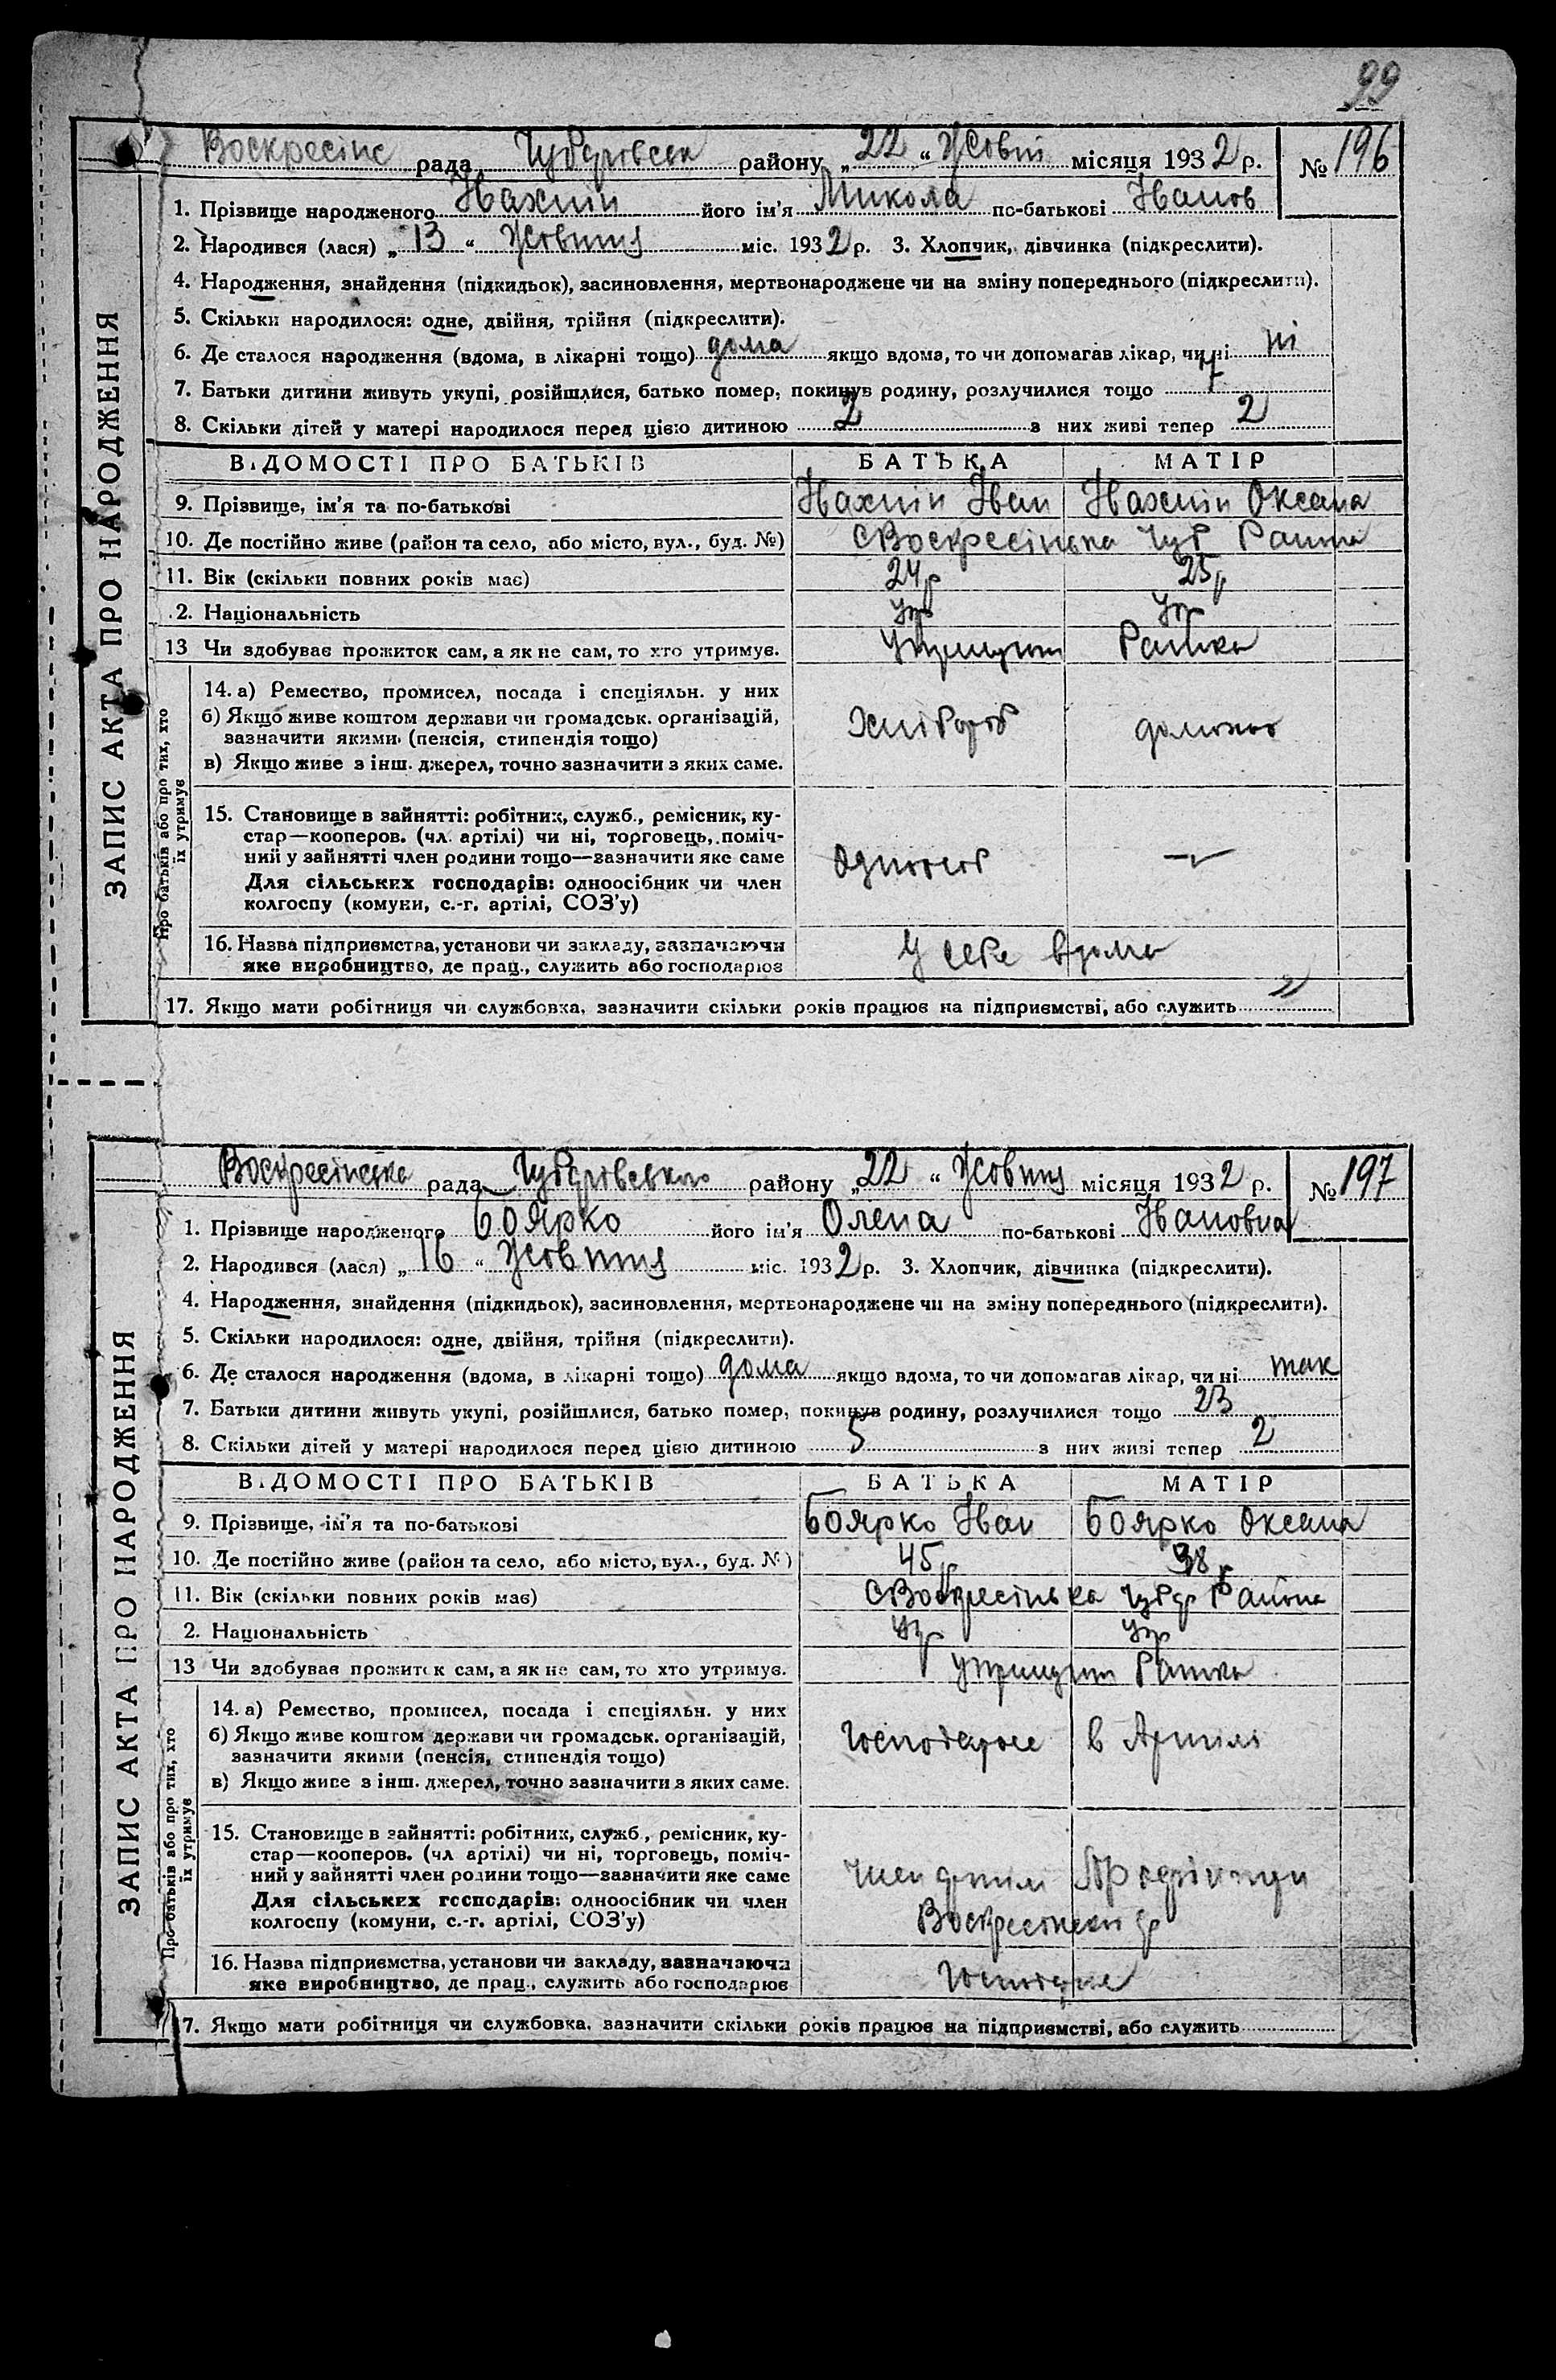 99
Воскресінс рада Чубарівськ району „22“ Жовтн місяця 1932 р. № 196
1. Прізвище народженого Івахнін його ім'я Микола по-батькові Іванов
2. Народився (лася) „13“ Жовтня міс. 1932 р. 3. Хлопчик, дівчинка (підкреслити).
4. Народження, знайдення (підкидьок), засиновлення, мертвонароджене чи на зміну попереднього (підкреслити).
5. Скільки народилося: одне, двійня, трійня (підкреслити).
6. Де сталося народження (вдома, в лікарні тощо) дома якщо вдома, то чи допомагав лікар, чи ні ні
7. Батьки дитини живуть укупі, розійшлися, батько помер, покинув родину, розлучилися тощо 7
8. Скільки дітей у матері народилося перед цією дитиною 2 з них живі тепер 2
ВІДОМОСТІ ПРО БАТЬКІВ БАТЬКА МАТІР
9. Прізвище, ім'я та по-батькові Івахнін Іван Івахнін Оксана
10. Де постійно живе (район та село, або місто, вул., буд. №) С Воскресінька Чуб Района
11. Вік (скільки повних років має) 24 р 25 р
2. Національність Укр Укр
13 Чи здобуває прожиток сам, а як не сам, то хто утримує. Утримует Батько
14. а) Ремество, промисел, посада і спеціяльн. у них
б) Якщо живе коштом держави чи громадськ. організацій,
зазначити якими (пенсія, стипендія тощо) Хлібороб домохоз
в) Якщо живе з інш. джерел, точно зазначити з яких саме.
15. Становище в зайнятті: робітник, служб., ремісник, ку-
стар—кооперов. (чл. артілі) чи ні, торговець, поміч-
ний у зайнятті член родини тощо—зазначити яке саме Одноособ —
Для сільських господарів: одноосібник чи член
колгоспу (комуни, с.-г. артілі, СОЗ'у)
16. Назва підприємства, установи чи закладу, зазначаючи У себе вдома
яке виробництво, де прац., служить або господарює
17. Якщо мати робітниця чи службовка, зазначити скільки років працює на підприємстві, або служить „
ЗАПИС АКТА ПРО НАРОДЖЕННЯ
Про батьків або про тих, хто
їх утримує
Воскресінська рада Чубарівського району „22“ Жовтня місяця 1932 р. № 197
1. Прізвище народженого Боярко його ім'я Олена по-батькові Івановна
2. Народився (лася) „16“ Жовтня міс. 1932 р. 3. Хлопчик, дівчинка (підкреслити).
4. Народження, знайдення (підкидьок), засиновлення, мертвонароджене чи на зміну попереднього (підкреслити).
5. Скільки народилося: одне, двійня, трійня (підкреслити).
6. Де сталося народження (вдома, в лікарні тощо) дома якщо вдома, то чи допомагав лікар, чи ні так
7. Батьки дитини живуть укупі, розійшлися, батько помер, покинув родину, розлучилися тощо 23
8. Скільки дітей у матері народилося перед цією дитиною 5 з них живі тепер 2
ВІДОМОСТІ ПРО БАТЬКІВ БАТЬКА МАТІР
9. Прізвище, ім'я та по-батькові Боярко Іван Боярко Оксана
10. Де постійно живе (район та село, або місто, вул., буд. №) 45 р 38 р
11. Вік (скільки повних років має) С Воскресінька Чубар Района
2. Національність Укр Укр
13 Чи здобуває прожиток сам, а як не сам, то хто утримує. Утримует Батько
14. а) Ремество, промисел, посада і спеціяльн. у них
б) Якщо живе коштом держави чи громадськ. організацій, Господарює в Артілі
зазначити якими (пенсія, стипендія тощо)
в) Якщо живе з інш. джерел, точно зазначити з яких саме.
15. Становище в зайнятті: робітник, служб., ремісник, ку-
стар—кооперов. (чл артілі) чи ні, торговець, поміч-
ний у зайнятті член родини тощо—зазначити яке саме Член
Для сільських господарів: одноосібник чи член
колгоспу (комуни, с.-г. артілі, СОЗ'у)
16. Назва підприємства, установи чи закладу, зазначаючи
яке виробництво, де прац., служить або господарює Господарює
7. Якщо мати робітниця чи службовка, зазначити скільки років працює на підприємстві, або служить
ЗАПИС АКТА ПРО НАРОДЖЕННЯ
Про батьків або про тих, хто
їх утримує